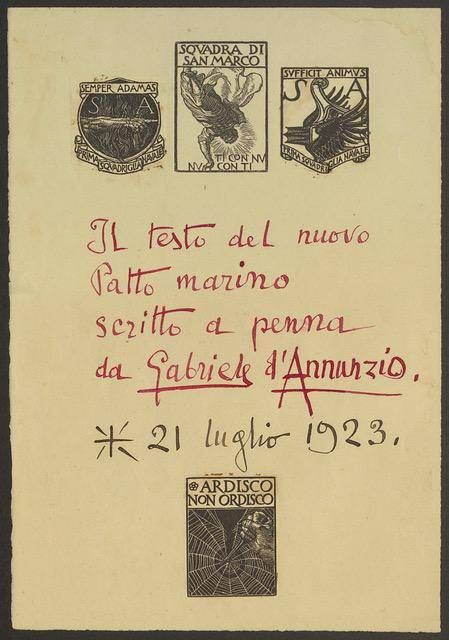 SEMPER ADAMAS
S A
PRIMA SQVADRIGLIA NAVALE
SQVADRA DI
SAN MARCO
TI CON NV
NVI CON TI
SVFFICIT ANIMVS
S A
PRIMA SQVADRIGLIA NAVALE
Il testo del nuovo
Patto marino
scritto a penna
da Gabriele d'Annunzio.
21 luglio 1923.
ARDISCO
NON ORDISCO